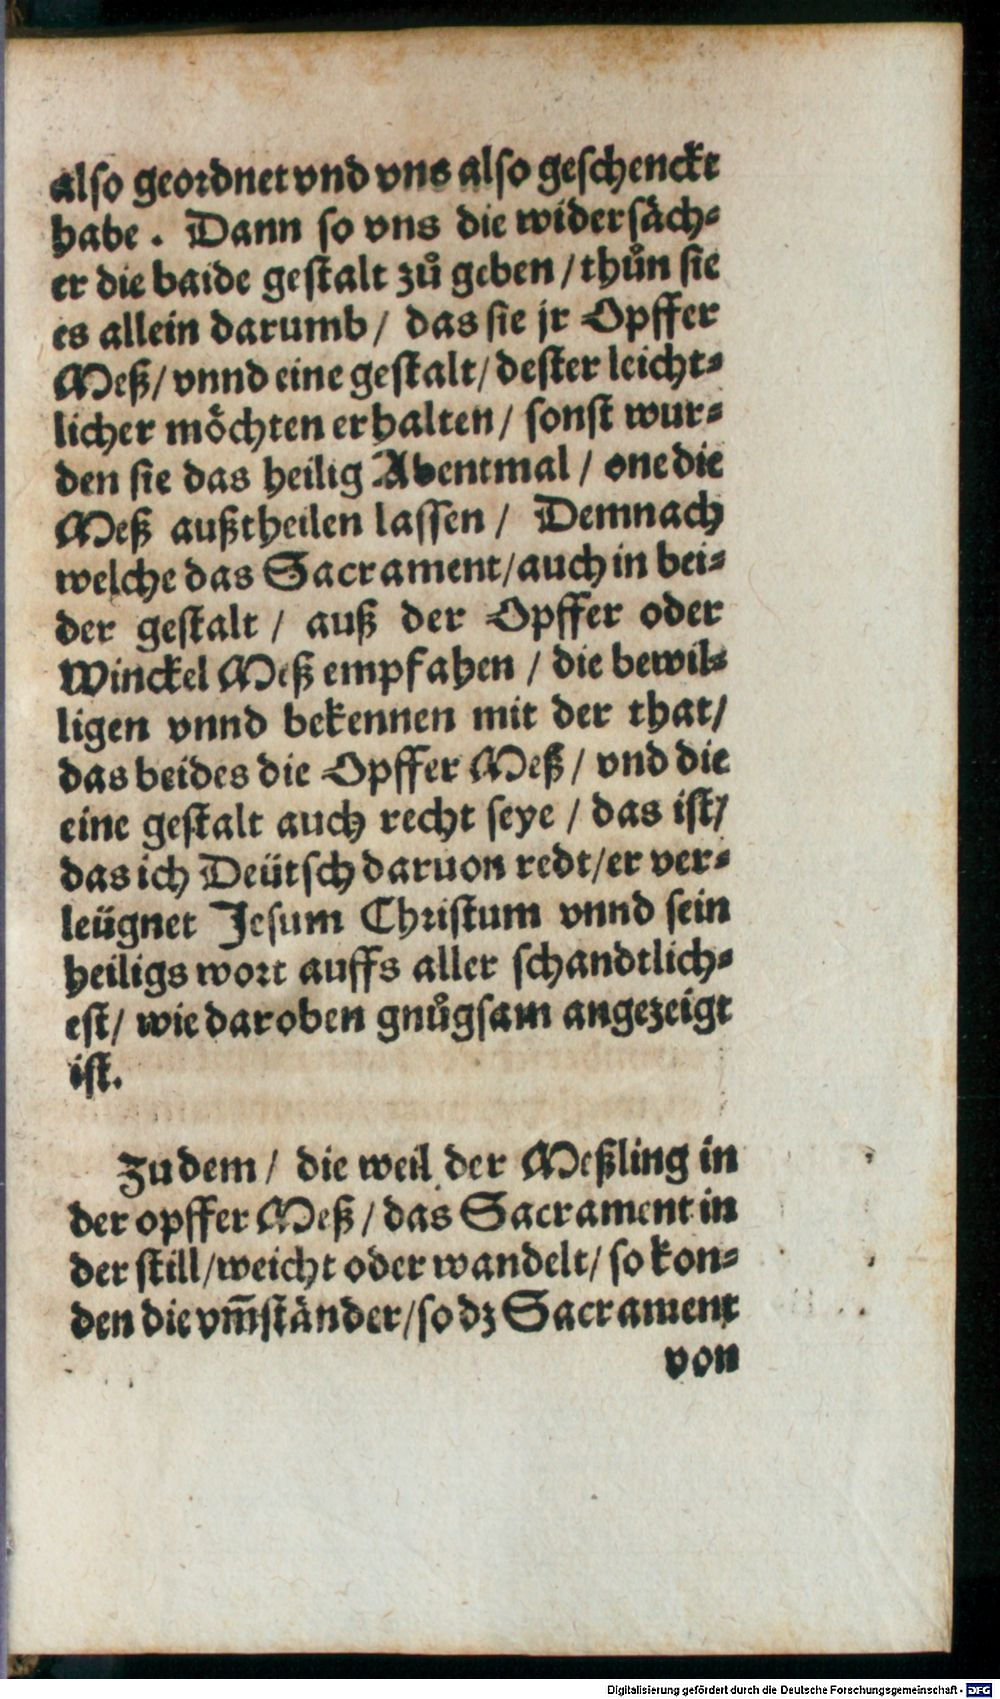 also geordnet vnd vns also geschenckt
habe. Dann so vns die widersäch-
er die baide gestalt zů geben / thůn sie
es allein darumb / das sie jr Opffer
Meß / vnnd eine gestalt / dester leicht-
licher möchten erhalten / sonst wur-
den sie das heilig Abentmal / one die
Meß außtheilen lassen / Demnach
welche das Sacrament / auch in bei-
der gestalt / auß der Opffer oder
Winckel Meß empfahen / die bewil-
ligen vnnd bekennen mit der that /
das beides die Opffer Meß / vnd die
eine gestalt auch recht seye / das ist /
das ich Deütsch daruon redt / er ver-
leügnet Jesum Christum vnnd sein
heiligs wort auffs aller schandtlich-
est / wie daroben gnůgsam angezeigt
ist.
Zu dem / die weil der Meßling in
der opffer Meß / das Sacrament in
der still / weicht oder wandelt / so kon-
den die vm̃ständer / so dz Sacrament
von
Digitalisierung gefördert durch die Deutsche Forschungsgemeinschaft - DFG